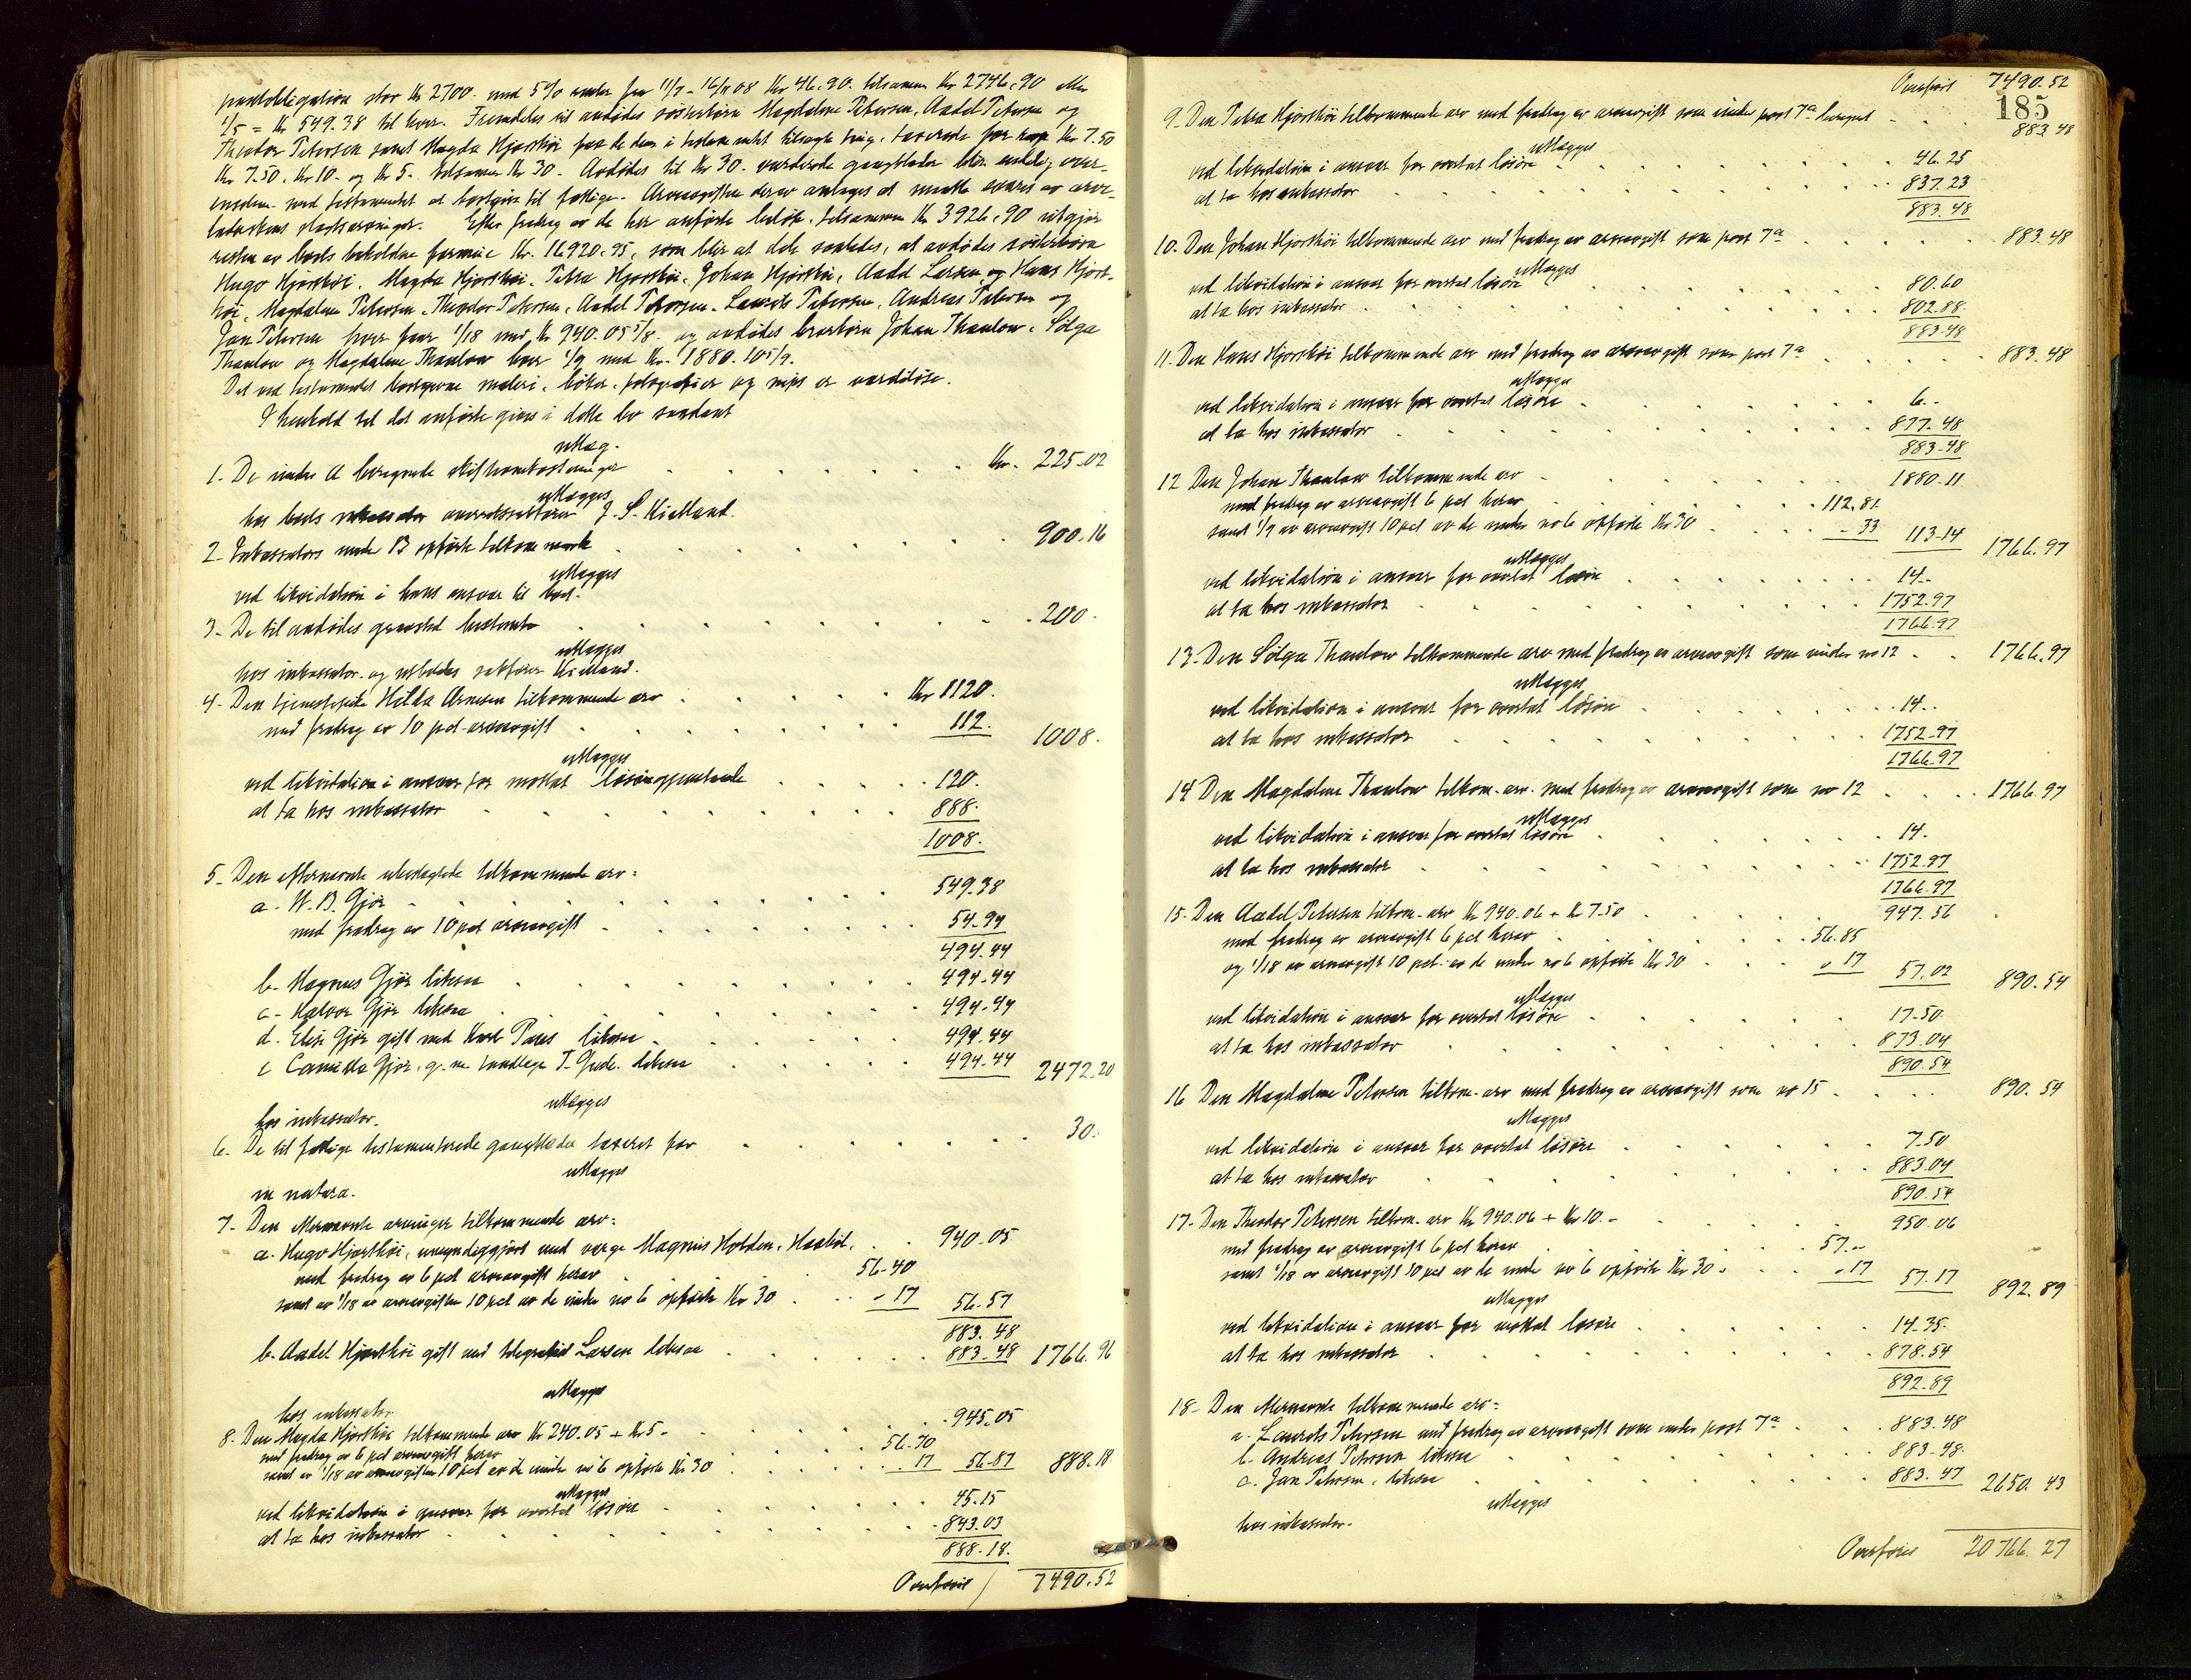 pantobligation stor Kr 2700 med 5% renter fra 11/7 - 16/11 08 Kr 46.90. tilsammen Kr 2746.90 eller
1/5 = Kr 549.38 til hver. Fremdeles vil avdødes søsterbørn Magdalene Petersen, Aadel Petersen og
Theodor Petersen samt Magda Hjorthöi faa de dem i testamentet tilsagte ting, taxerede for Kr 7.50
Kr 7.50. Kr 10. og Kr 5. tilsammen Kr 30. Avdødes til Kr 30. vurderede gangklæder blir endelig overens-
stemm. med testamentet at bortgives til fattige. Arveavgiften derav antages at maatte svares av arve-
laterskens slektsarvinger. Efter fradrag av de her anførte beløp, tilsammen Kr 3926.90 utgjør
resten av boets beholdne formue Kr. 16920.95, som blir at dele saaledes, at avdødes søsterbørn
Hugo Hjorthöi, Magda Hjorthöi, Petra Hjorthöi, Johan Hjorthöi, Aadel Larsen og Hans Hjort-
höi, Magdalene Petersen, Theodor Petersen, Aadel Petersen, Laurits Petersen, Andreas Petersen og
Jan Petersen hver faar 1/18 med Kr 940.05 5/18 og avdødes brorbörn Johan Thaulow, Sölga
Thaulow og Magdalene Thaulow hver 1/9 med Kr. 1880.10 5/9.
Det ved testamentet bortgivne maleri, bøker, fotografier og nips er værdiløse.
I henhold til det anførte gives i dette bo saadant
utlæg.
1. De under A beregnede skifteomkostninger Kr. 225.02
utlægges
hos boets overretssakfører J. S. Kielland.
2. Inkassators under B opførte tilkommende 900.16
utlægges
ved likvidation i hans ansvar til boet.
3. De til avdødes gravsted bestemte 200.
utlægges
hos inkassator og utbetales sakfører Kielland.
4. Den tjenestepike Hilda Arnesen tilkommende arv Kr 1120.
med fradrag av 10 pct arveavgift 112. 1008.
utlægges
ved likvidation i ansvar for mottat løsøregjenstande 120.
at ta hos inkassator 888.
1008.
5. Den efternævnte tilkommende arv:
a. N. B. Gjör 549.38
med fradrag av 10 pct arveavgift 54.94
494.44
b. Magnus Gjör likesaa 494.44
c. Halvor Gjör likesaa 494.44
d. Elise Gjör gift med Karl Paus likesaa 494.44
e Camilla Gjör, g. m. tandlæge T. Gude likesaa 494.44 2472.20
utlægges
hos inkassator.
6. De til fattige testamenterede gangklæder taxeret for 30.
utlægges
in natura.
7. Den efternævnte arvinger tilkommende arv:
a. Hugo Hjorthöi, umyndiggjort med verge Magnus Holden, 940.05
med fradrag av 6 pct arveavgift herav 56.40
samt av 1/18 av arveavgiften 10 pct av de under no 6 opførte Kr 30 - 17 56.57
883.48
b. Aadel Hjorthöi gift med telegrafist Larsen likesaa 883.48 1766.96
utlægges
hos inkassator
8. Den Magda Hjorthöi tilkommende arv Kr 240.05 + Kr 5. 945.05
med fradrag av 6 pct arveavgift herav 56.70
samt av 1/18 av arveavgiften 10 pct av de under no 6 opførte Kr 30 17 56.87 888.18
utlægges
ved likvidation i ansvar for overtat løsøre 45.15
at ta hos inkassator 843.03
888.18.
Overføres 7490.52
Overført 7490.52
185
9. Den Petra Hjorthöi tilkommende arv med fradrag av arveavgift som under post 7a beregnet 883.48
utlægges
ved likvidation i ansvar for overtat løsøre 46.25
at ta hos inkassator 837.23
883.48
10. Den Johan Hjorthöi tilkommende arv med fradrag av arveavgift som post 7a 883.48
utlægges
ved likvidation i ansvar for overtat løsøre 80.60
at ta hos inkassator 802.88.
883.48
11. Den Hans Hjorthöi tilkommende arv med fradrag av arveavgift som post 7a 883.48
utlægges
ved likvidation i ansvar for overtat løsøre 6.-
at ta hos inkassator 877.48
883.48
12 Den Johan Thaulow tilkommende arv 1880.11
med fradrag av arveavgift 6 pct herav 112.81
samt 1/9 av arveavgift 10 pct av de under no 6 opførte Kr 30 - 33 113.14 1766.97
utlægges
ved likvidation i ansvar for overtat løsøre 14.-
at ta hos inkassator 1752.97
1766.97
13. Den Sölga Thaulow tilkommende arv med fradrag av arveavgift som under no 12 1766.97
utlægges
ved likvidation i ansvar for overtat løsøre 14.-
at ta hos inkassator 1752.97
1766.97
14 Den Magdalene Thaulow tilkom. arv. med fradrag av arveavgift som no 12 1766.97
utlægges
ved likvidation i ansvar for overtat løsøre 14.
at ta hos inkassator 1752.97
1766.97
15. Den Aadel Petersen tilkom. arv Kr 940.06 + Kr 7.50 947.56
med fradrag av arveavgift 6 pct herav 56.85
og 1/18 av arveavgift 10 pct. av de under no 6 opførte Kr 30 " 17 57.02 890.54
utlægges
ved likvidation i ansvar for overtat løsøre 17.50.
at ta hos inkassator 873.04
890.54
16 Den Magdalene Petersen tilkom. arv med fradrag av arveavgift som no 15 890.54
utlægges
ved likvidation i ansvar for overtat løsøre 7.50
at ta hos inkassator 883.04
890.54
17. Den Theodor Petersen tilkom. arv Kr 940.06 + Kr 10.- 950.06
med fradrag av arveavgift 6 pct herav 57.-
samt 1/18 av arveavgift 10 pct av de under no 6 opførte Kr 30. - 17 57.17 892.89
utlægges
ved likvidation i ansvar for mottat løsøre 14.35.
at ta hos inkassator 878.54
892.89
18. Den efternævnte tilkommende arv:
a. Laurits Petersen med fradrag av arveavgift som under post 7a 883.48
b. Andreas Petersen likesaa 883.48.
c. Jan Petersen, likesaa 883.47 2650.43
utlægges
hos inkassator.
Overføres 20766.27